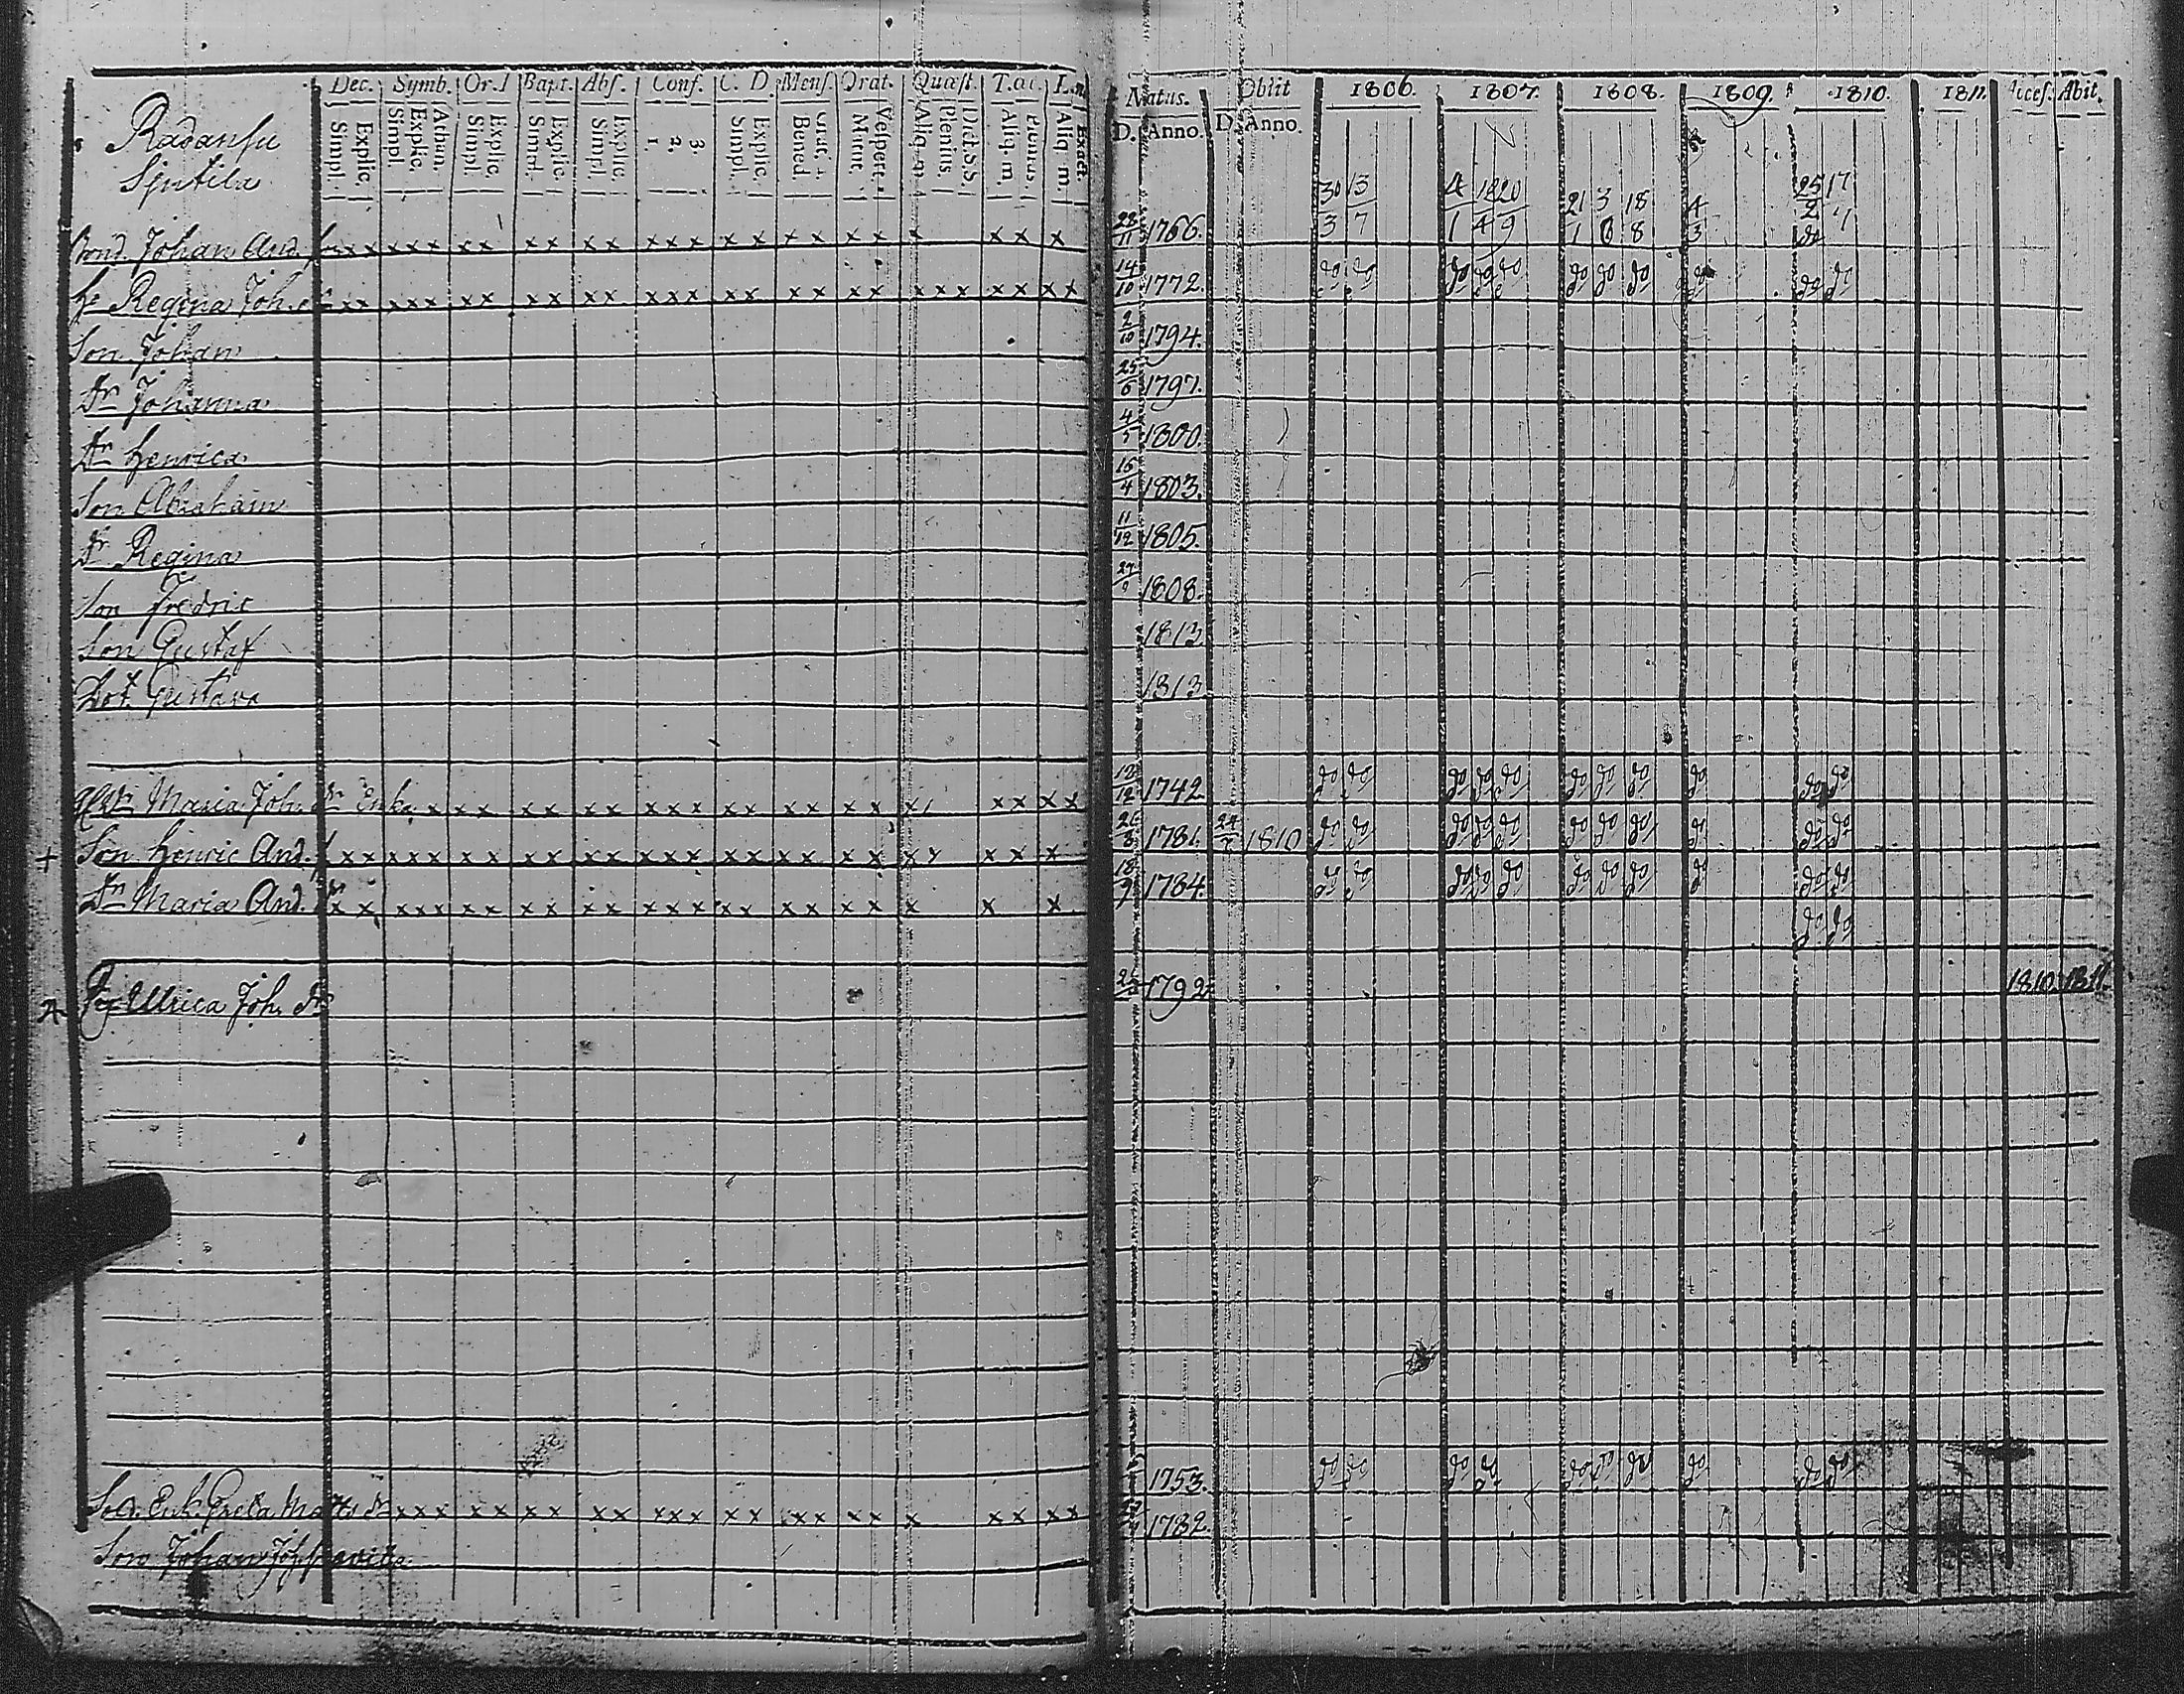 Dec. Symb. Or. D Bapt. Abs. Conf. C. D. Mens. Orat. Quæst. T. œc. Natus. Obiit 1806. 1807. 1808. 1809. 1810. 1811. Acces. Abit.
Simpl. Explic. Simpl. Explic. Athan. Simpl. Explic. Simpl. Explic. Simpl. Explic. 1 2. 3. Simpl. Explic. Bened Grat. Matut. Vespert. Aliq. m. Plenius. Dict. S. S. Aliq. m. Plenius. Aliq. m. Exact. D. Anno. D. Anno.
Sjutila
30/3 13/7 4/1 18/4 20/9 21/1 3/6 18/8 4/3 25/2 17/7
Bond. Johan And. x x x x x x x x x x x x x x x x x x x x x x x x x 22/11 1766.
Hu Regina Joh. dr x x x x x x x x x x x x x x x x x x x x x x x x x x x x 14/10 1772. do do do do do do do do do do do
Son Johan 2/10 1794.
Dr Johanna 25/6 1797.
Dr Henrica 4/5 1800.
Son Abraham 16/4 1803.
Dr Regina 11/12 1805.
Son Fredric 27/9 1808.
Son Gustaf 1813
Dot. Gustava 1813
Maria Joh. dr Enka x x x x x x x x x x x x x x x x x x x x x 12/12 1742. do do do do do do do do do do do
+ Son Henric And. x x x x x x x x x x x x x x x x x x x x x x x x x 26/8 1781. 1810 do do do do do do do do do do do
Dr Maria And. dr x x x x x x x x x x x x x x x x x x x x x x x 18/9 1784. do do do do do do do do do do do
do do
Pig. Ulrica Joh. dr 1792. 1810. 1811.
Enk. Greta Matts dr x x x x x x x x x x x x x x x x x x x x x x x 1753. do do do do do do do do do do
Son Johan 1782.